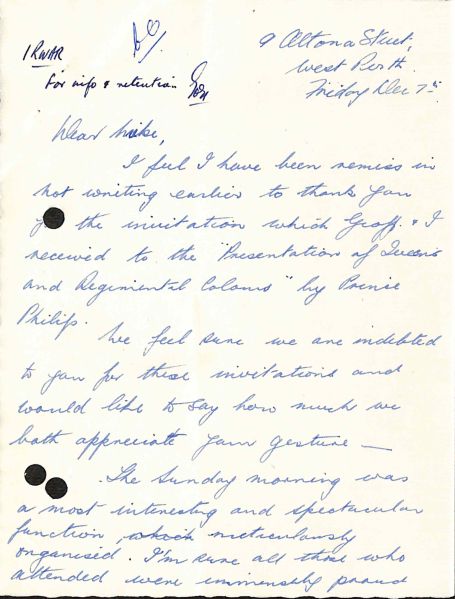 9 Altona Street,
West Perth.
Friday Dec 7th
1 RWAR
For info & retention
Dear Mike,
I feel I have been remiss in
not writing earlier to thank you
the invitation which Geoff. & I
received to the "Presentation of Queen's
and Regimental Colours" by Prince
Philip.
We feel sure we are indebted
to you for these invitations and
would like to say how much we
both appreciate your gesture —
The Sunday morning was
a most interesting and spectacular
function, which meticulously
organised. I'm sure all those who
attended were immensely proud